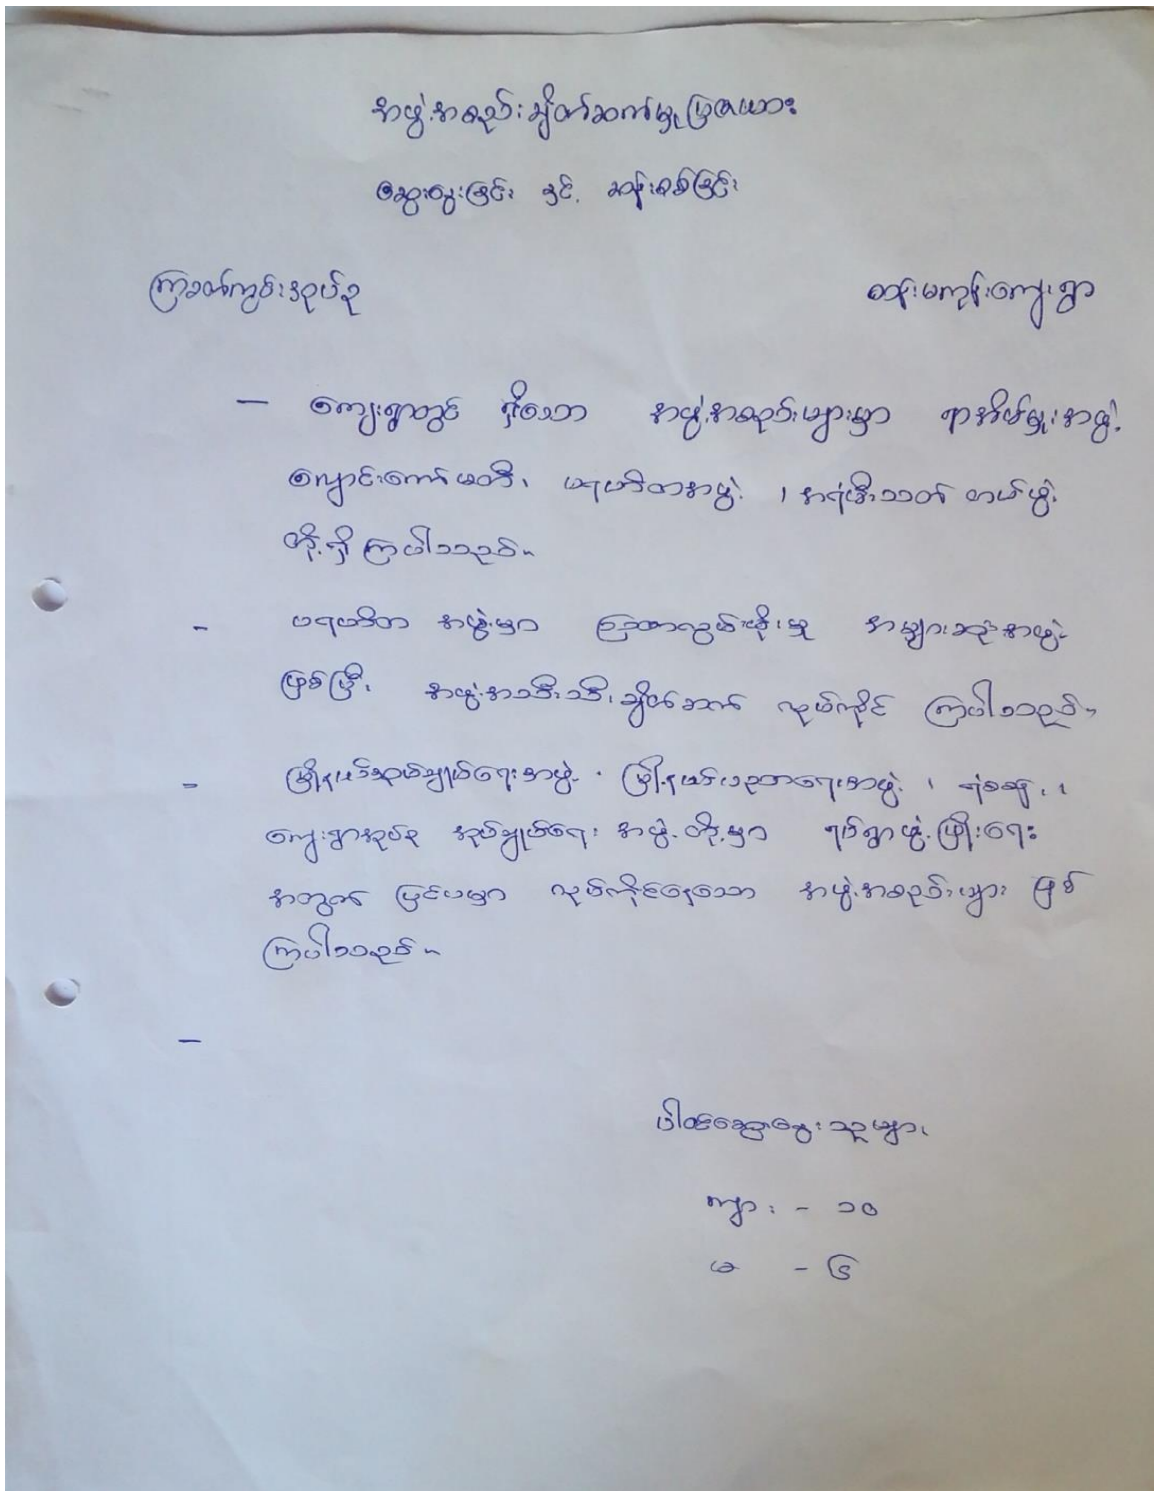 အဖွဲ့အစည်းချိတ်ဆက်မှုပြဇယား
ဆွေးနွေးခြင်း နှင့် ဆန်းစစ်ခြင်း
ကြခတ်ကွင်းအုပ်စု
စာန်းမကုန်းကျေးရွာ
- ကျေးရွာတွင် ရှိသော အဖွဲ့အစည်းများမှာ ရာအိမ်မှုးအဖွဲ့
ကျောင်းကော်မတီ၊ ပရဟိတအဖွဲ့ ၊ အရံမီးသတ် တပ်ဖွဲ့
တို့ရှိကြပါသည်။
- ပရဟိတ အဖွဲ့မှာ ဩဇာလွှမ်းမိုးမှု အများဆုံးအဖွဲ့
ဖြစ်ပြီး အဖွဲ့အသီးသီးချိတ်ဆက် လုပ်ကိုင် ကြပါသည်။
- မြို့နယ်အုပ်ချုပ်ရေးအဖွဲ့ ၊ မြို့နယ်ပညာရေးအဖွဲ့ ၊ ရဲစခန်း ၊
ကျေးရွာအုပ်စု အုပ်ချုပ်ရေး အဖွဲ့တို့မှာ ရပ်ရွာဖွံ့ဖြိုးရေး
အတွက် ပြင်ပမှာ လုပ်ကိုင်နေသော အဖွဲ့အစည်းများ ဖြစ်
ကြပါသည်။
-
ပါဝင်ဆွေးနွေးသူများ
ကျား - ၁၀
မ - ၆